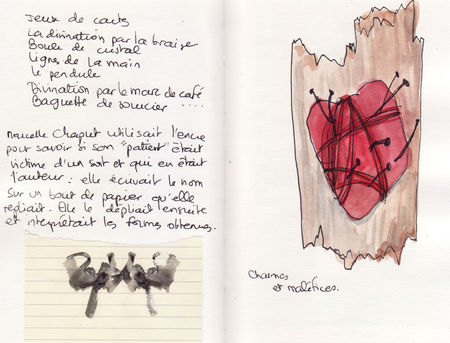 Jeux de carts
La divination par la braise
Boule de cristal
Lignes de la main
le pendule
Divination par le marc de café
Baguette de sourcier ....
Marcelle Chaput utilisait l'encre
pour savoir si son "patient" était
victime d'un sort et qui en était
l'auteur : elle écrivait le nom
sur un bout de papier qu'elle
repliait. Elle le dépliait ensuite
et interprétait les formes obtenues.
Charmes
et maléfices.